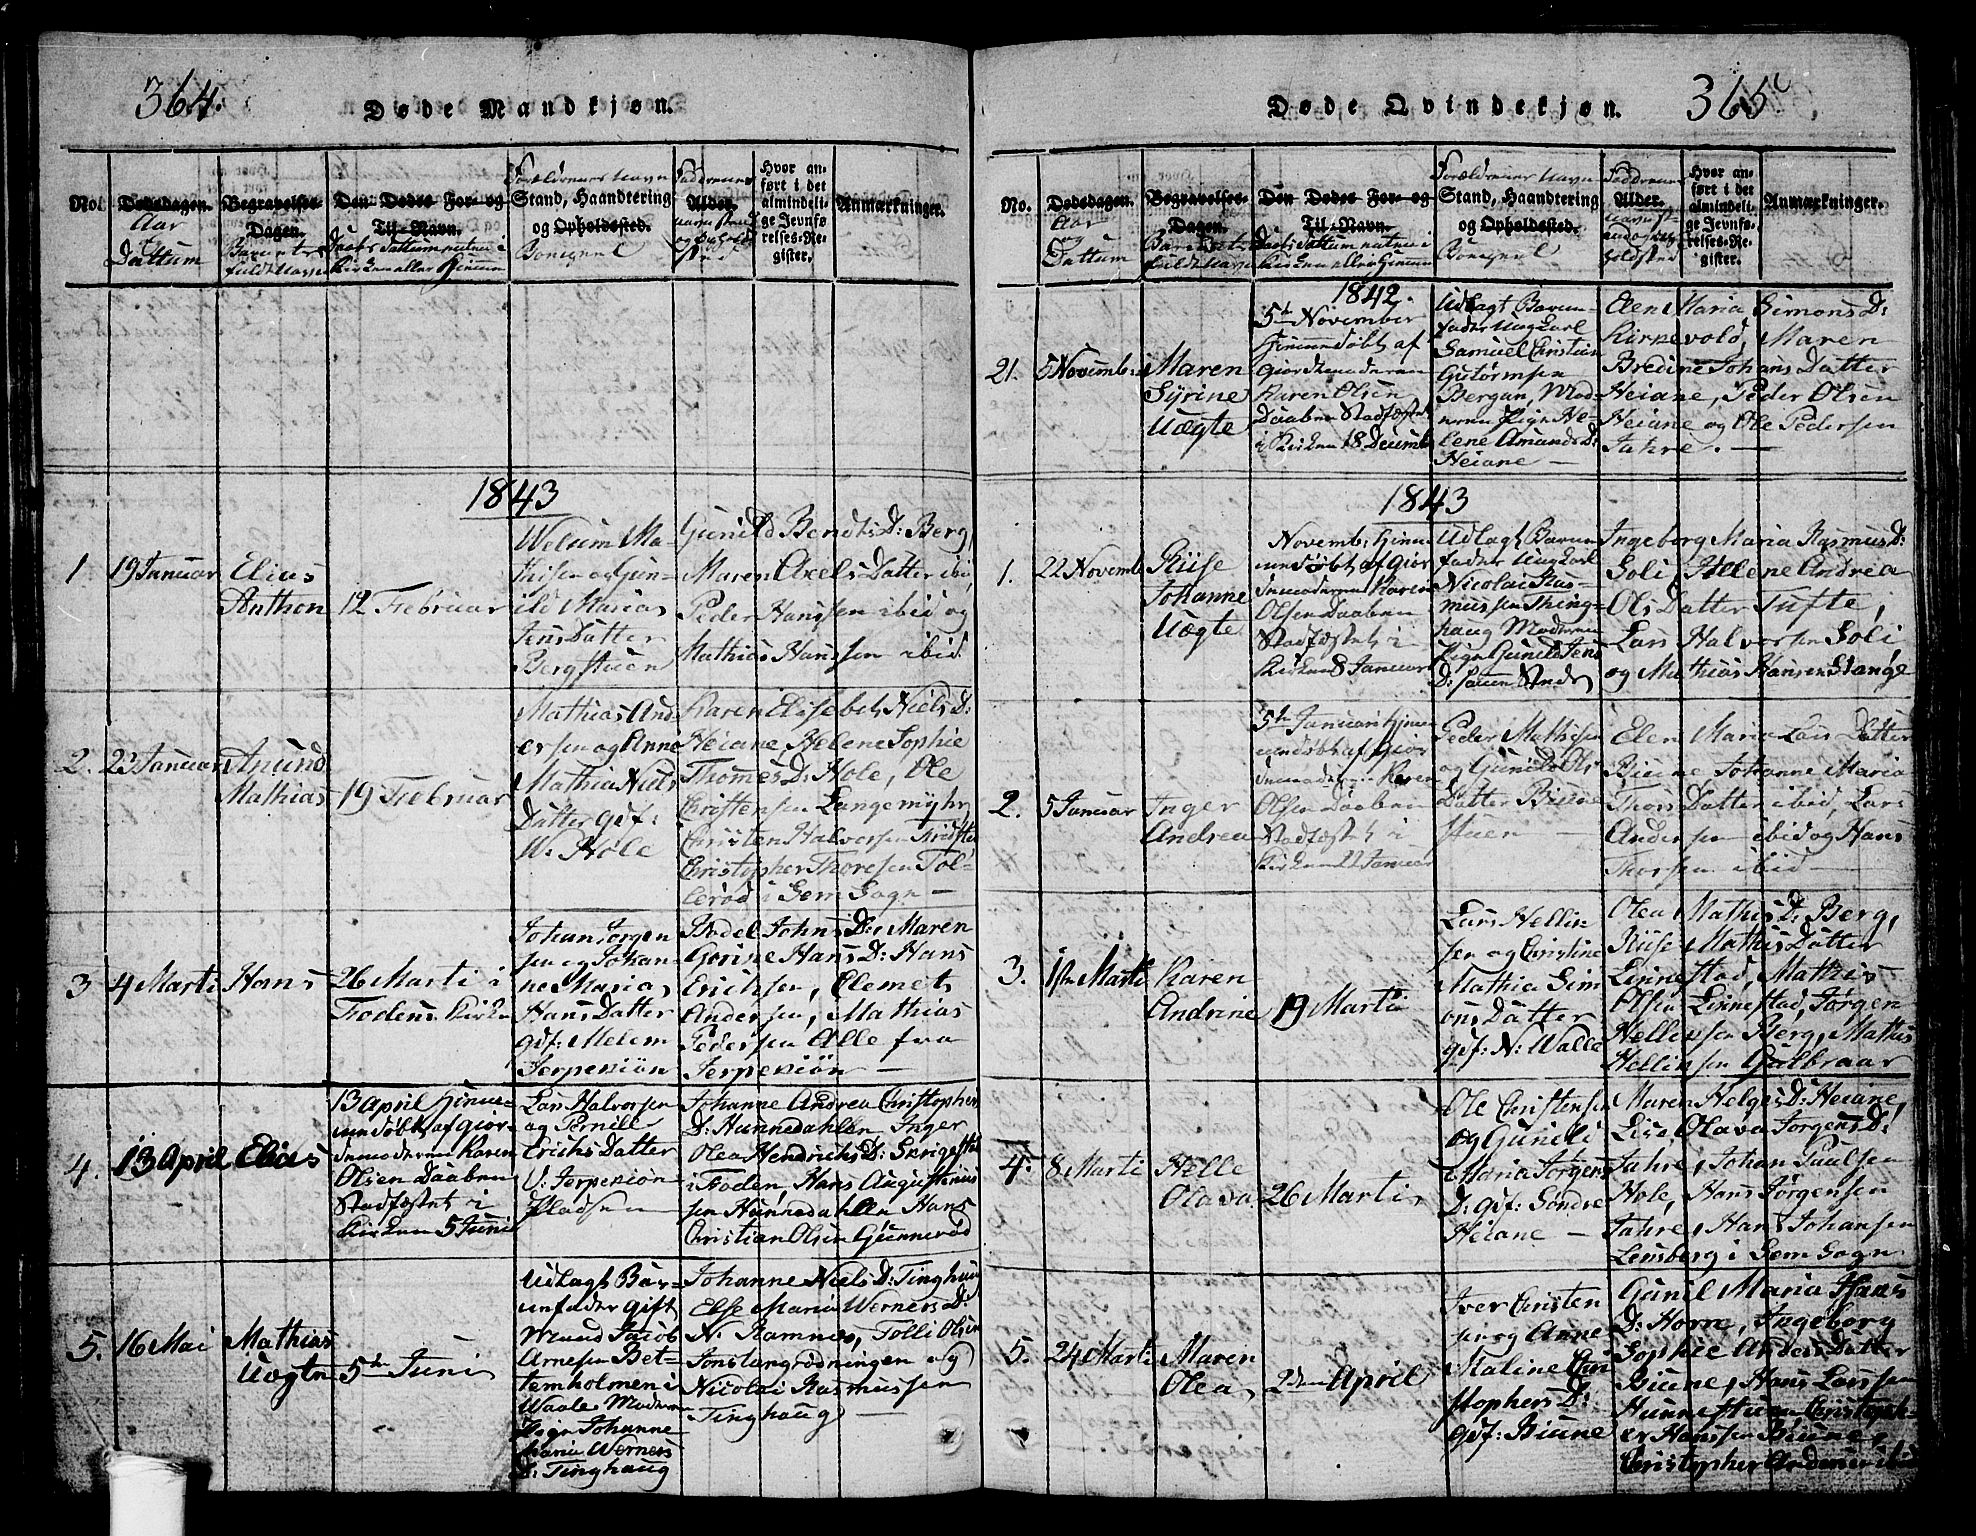 364.
Døde Mandkjøn.
No.
Dødsdagen.
Aar
og
Dattum
Begravelses-
Dagen.
Barnets
fulde Navn
Den Dødes For- og
Til-Navn.
Daabs Dattum enten i
Kirken eller Hjemme
Forældrenes Navn
Stand, Haandtering
og Opholdsted.
Boeigned
Faddernes
Alder.
Navn Stand
og Ophold-
sted
Hvor an-
ført i det
almindeli-
ge Jevnfø-
relses-Re-
gister.
Anmærkninger.
1843
1
19 Januar
Elias
Anthon
12 Februar
Welum Ma-
thisen og Gun-
ild Maria
Jens Datter
Bergstuen
Gunild Bendts D: Berg,
Maren Axels Datter ibid,
Peder Hanssen ibid og
Mathias Hanssen ibid
2.
23 Januar
Amund
Mathias
19 Februar
Mathias And-
ersen og Anne
Mathea Niels
Datter gdf:
W. Hole
Karen Elisebet Niels D:
Heiane, Helene Sophie
Thomes D: Hole, Ole
Christensen Langemyhr,
Christen Halvorsen
Christopher Thoresen Tol-
lerød i Sem Sogn —
3
4 Marti
Hans
26 Marti i
Fodens Kirke
Johan Jørgen
sen og Johan-
ne Maria
Hans Datter
gdf: Melem
Jerpekiøn
Bodel Johns D: Maren
Gorine Hans D: Hans
Erichsen, Clemet
Andersen, Mathias
Pedersen Alle fra
Jerpekiøn —
4.
13 April
Elias
13 April Hjemme-
døbt af Gior-
demoderen Karen
Olsen Daaben
Stadfæstet i
Kirken 5 Juni
Lars Halvorsen
og Pernille
Erichs Datter
V. Jerpekiøn
Pladsen
Johanne Andrea Christophers
D: Hunnedahlen, Inger
Olea Hendrichs D:
i Foden, Hans Augustinus
sen Hunnedahlen Hans
Christian Olsen Gunnerød
5.
16 Mai
Mathias
Uægte
5te Juni
Udlagt Bar-
nefader Gift
Mand Jacob
Arnesen Bet-
temholmen i
Waale Moderen
Pige Johanne
Maria Werners
D: Tinghaug
Johanne Niels D: Tinghaug
Else Maria Werners D:
N. Ramnes, Tolli Olsen
Jonstangrødningen og
Nicolai Rasmussen
Tinghaug —
365
Døde Qvindekjøn.
No.
Dødsdagen.
Aar
og
Dattum
Begravelses-
Dagen.
Barnets
fulde Navn
Den Dødes For- og
Til-Navn.
Daabs Dattum enten i
Kirken eller Hjemme
Forældrenes Navn
Stand, Haandtering
og Opholdsted.
Boeigned
Faddernes
Alder.
Navn St
and og Op
holdsted
Hvor an-
ført i det
almindeli-
ge Jevnfø-
relses-Re-
gister.
Anmærkninger.
1842.
21.
5 Novemb:
Maren
Syrine
Uægte
5te November
Hjemmedøbt af
Giordemoderen
Karen Olsen
Daaben Stadfæstet
i Kirken 18 Decemb
Udlagt Barne-
fader Ung Karl
Samuel Christian
Gutormsen
Bergan, Mod-
eren Pige He-
lene Amunds D:
Heiane —
Elen Maria Simons D:
Kirkevold, Maren
Bredine Johans Datter
Heiane, Peder Olsen
Heiane og Ole Pedersen
Jahre. —
1843
1.
22 Novemb
Riise
Johanne
Uægte
Novemb: Hjem
medøbt af Gior
demoderen Karen
Olsen Daaben
Stadfæstet i
Kirken 8 Januari
Udlagt Barne
fader Ung Karl
Nicolai Ras-
mussen Thing-
haug Moderen
Pige Gunild Jens
D:
Ingeborg Maria Rasmus D:
Soli, Helene Andrea
Ols Datter Tufte,
Lars Halvorsen Soli
og Mathias Hansen Stange
2.
5 Januar
Inger
Andrea
5te Januari Hjem
medøbt af Gior
demoderen Karen
Olsen Daaben
Stadfæstet i
Kirken 22 Januar
Peder Mathisen
og Gunild Ols
Datter Biune
stuen —
Elen Maria Lars Datter
Biune Johanne Maria
Thors Datter ibid, Lars
Andersen ibid og Hans
Thorsen ibid —
3.
1ste Marti
Karen
Andrine
19 Marti
Lars Hellie-
sen og Christine
Mathia Sim
ons Datter
gdf: N: Walle
Olea Mathis D: Berg,
Riise Mathis Datter
Linnestad, Mathis
Olsen Linnestad, Jørgen
Hellesen Berg, Mathis
Helliesen Galbraar
4.
8 Marti
Helle
Olava
26 Marti
Ole Christensen
og Gunild
Maria Jørgens
D: gdf: Søndre
Heiane —
Maren Helges D: Heiane,
Lise Olava Jørgens D:
Jahre, Johan Paulsen
Hole, Hans Jørgensen
Jahre, Hans Johansen
Lensberg i Sem Sogn
5.
24 Marti
Maren
Olea
2den April
Iver Christen
sen og Anne
Maline Chri
stophers D:
gdf: Biune
Gunil Maria Hans
D: Horre, Ingeborg
Sophie Anders Datter
Biune, Hans Larssen
Hunnestuen, Christoph-
er Hanssen Biune,
Christopher Andersen ibid